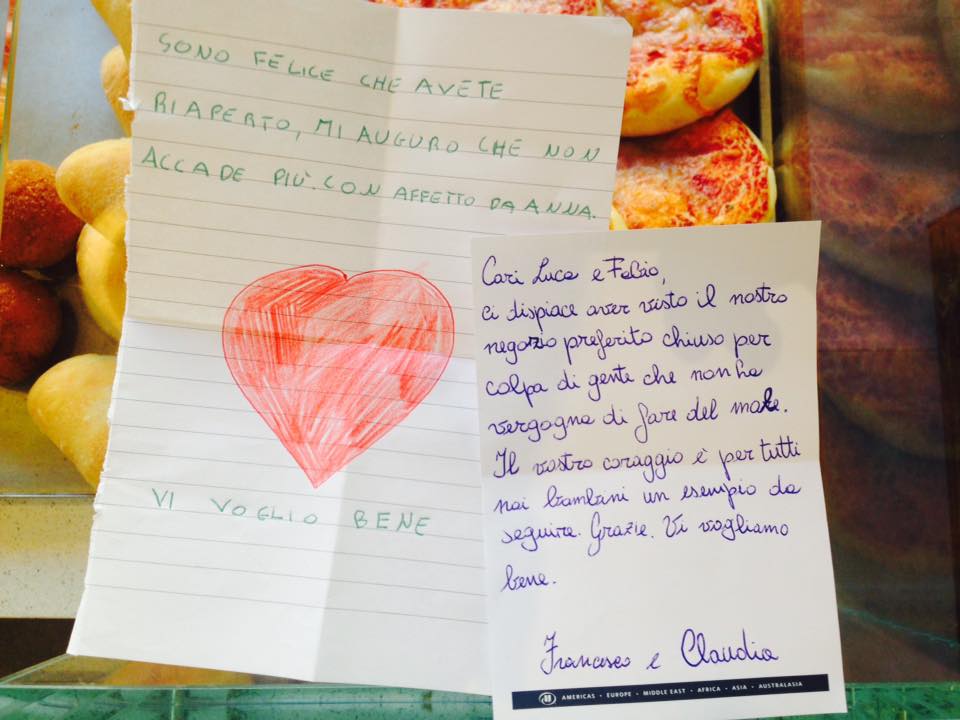 SONO FELICE CHE AVETE
RIAPERTO, MI AUGURO CHE NON
ACCADE PIÙ. CON AFFETTO DA ANNA.
VI VOGLIO BENE
Cari Luca e Fabio,
ci dispiace aver visto il nostro
negozio preferito chiuso per
colpa di gente che non ha
vergogna di fare del male.
Il vostro coraggio è per tutti
noi bambini un esempio da
seguire. Grazie. Vi vogliamo
bene.
Francesco e Claudia
AMERICAS • EUROPE • MIDDLE EAST • AFRICA • ASIA • AUSTRALASIA